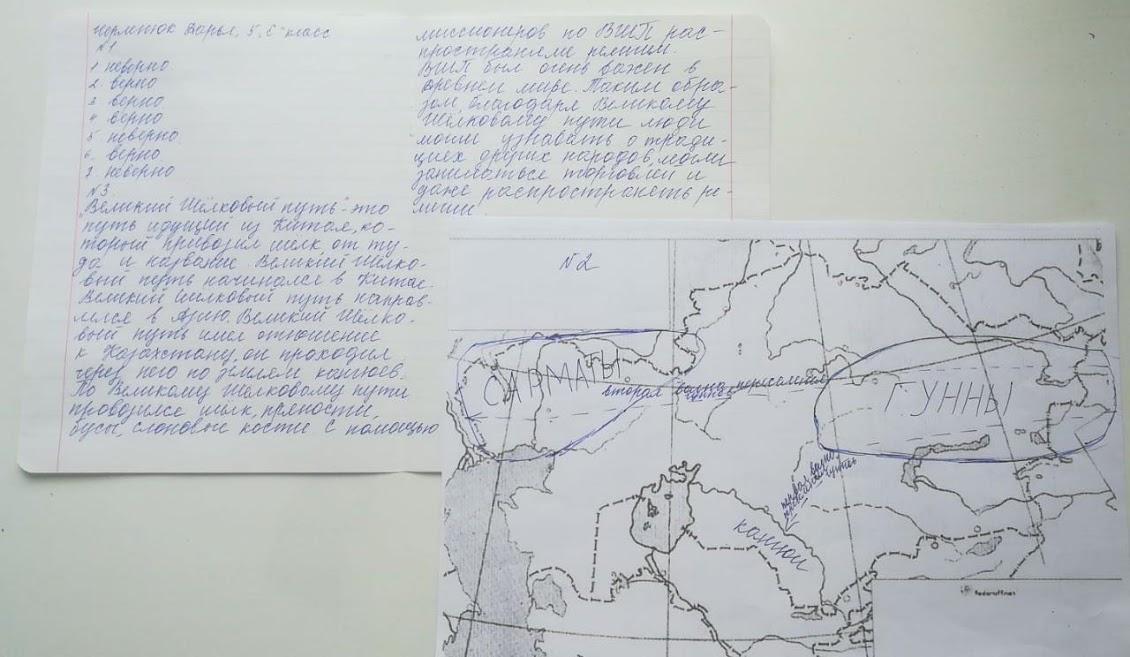 Дарья, 5 "Б" класс
№1
1. неверно
2. верно
3. верно
4. верно
5. неверно
6. верно
7. неверно
№3
"Великий Шёлковый путь"- это
путь идущий из Китая, ко-
торый привозил шелк от ту-
да и название. Великий Шёлко-
вый путь начинался в Китае.
Великий Шелковый путь направ-
лялся в Азию. Великий Шёлко-
вый путь имел отношение
к Казахстану, он проходил
через него по землям канюев.
По Великому Шёлковому пути
провозился шелк, пряности,
бусы, слоновые кости с помощью
миссионеров по ВШП рас-
пространяли религии.
ВШП был очень важен в
древнем мире. Таким обра-
зом, благодаря Великому
Шёлковому пути люди
могли узнавать о тради-
циях других народов, могли
заниматься торговлей и
даже распространять ре-
лигии.
№2
САРМАТЫ
вторая волна переселения
гуннов
ГУННЫ
первая волна
переселения гуннов
канюи